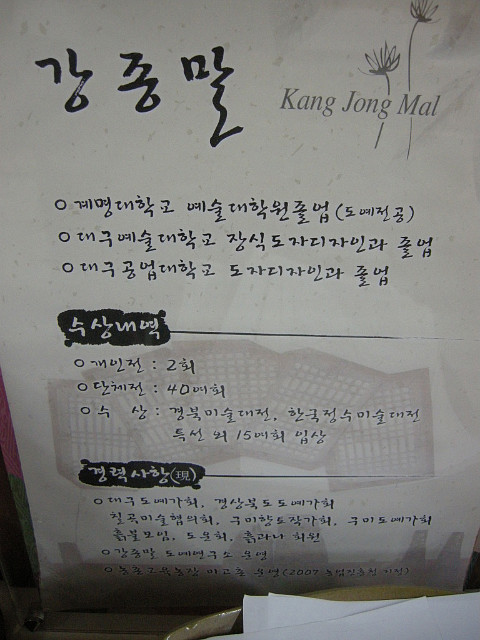 강종말
Kang Jong Mal
○ 계명대학교 예술대학원졸업(도예전공)
○ 대구예술대학교 장식도자디자인과 졸업
○ 대구공업대학교 도자디자인과 졸업
수상내역
○ 개인전 : 2회
○ 단체전 : 40여회
○ 수 상 : 경북미술대전, 한국정수미술대전
특선 외 15여회 입상
경력사항(現)
○ 대구도예가회, 경상북도도예가회
칠곡미술협의회, 구미향토작가회, 구미도예가회
흙불모임, 도운회, 흙과나 회원
○ 강종말 도예연구소 운영
○ 농촌교육농장 운영(2007 농업진흥청 지정)